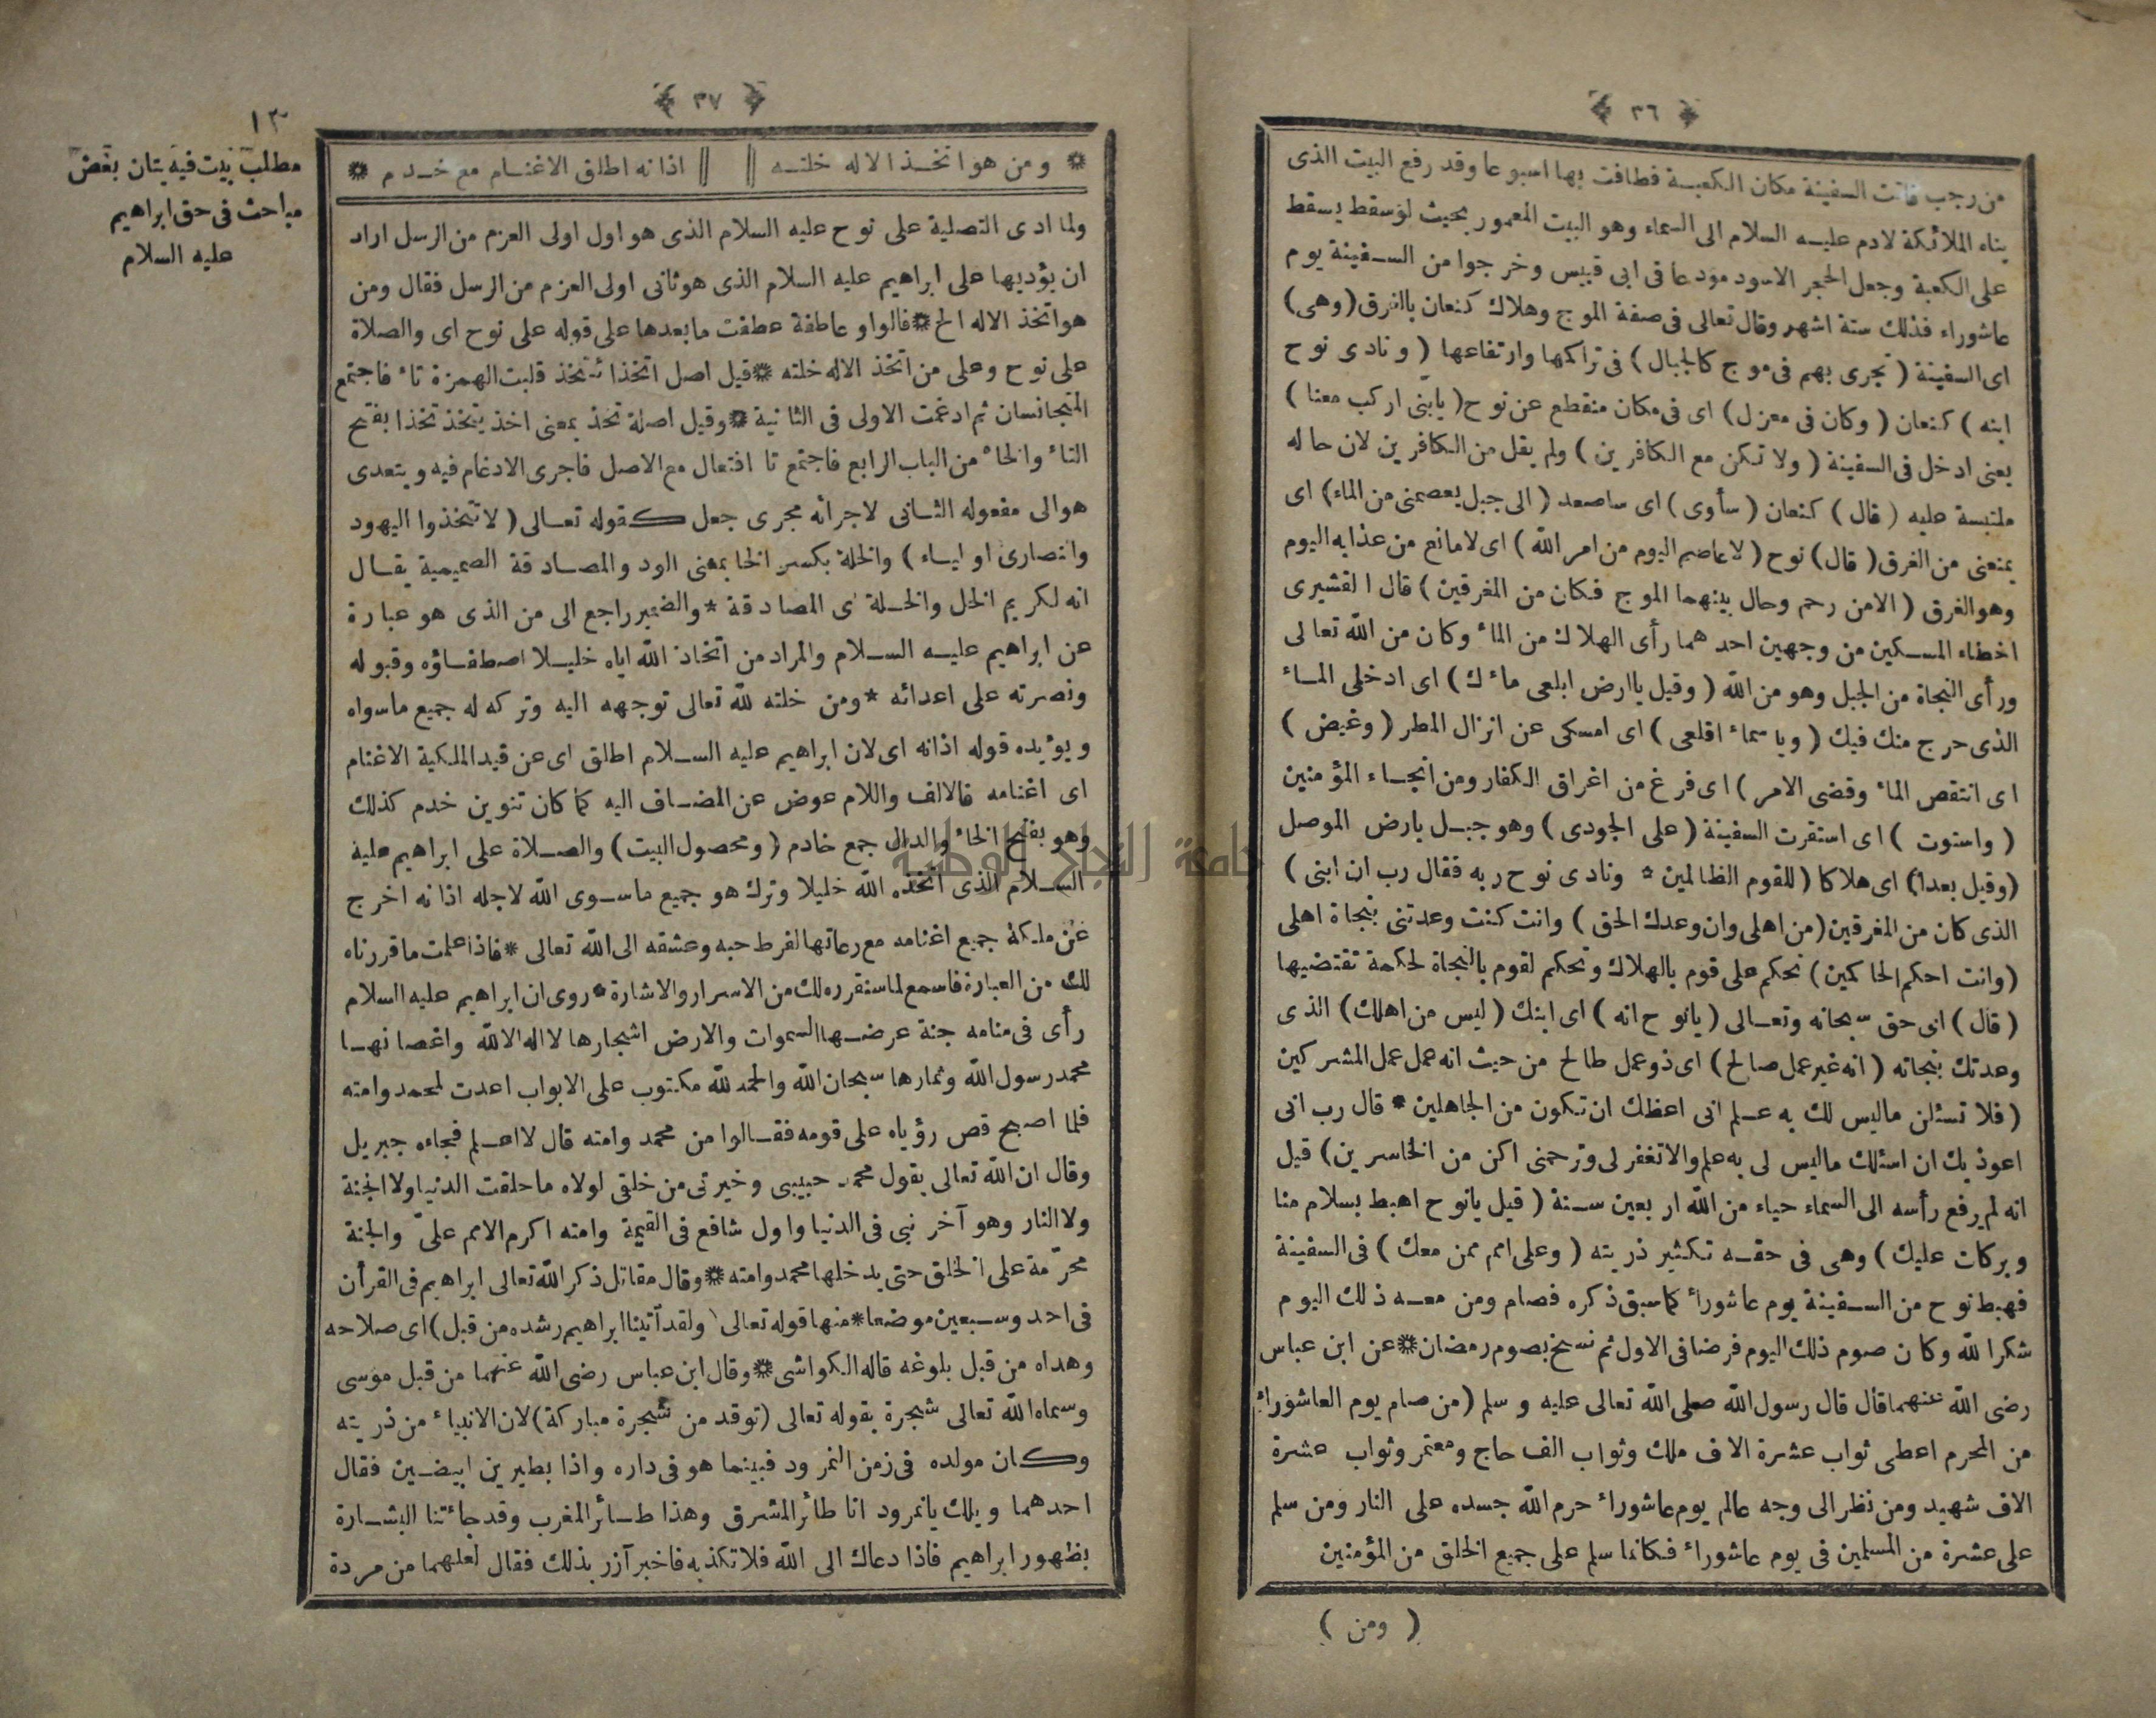 ﴿ ٣٦ ﴾
من رجب فاتت السفينة مكان الكعبـة فطافت بها اسبوعا وقد رفع البيت الذى
بناه الملائكة لادم عليـه السلام الى السماء وهو البيت المعمور بحيث لوسقط يسقط
على الكعبة وجعل الحجر الاسود مودعا فى ابى قبيس وخرجوا من السـفينة يوم
عاشوراء فذلك ستة اشهر وقال تعالى فى صفة الموج وهلاك كنعان بالغرق (وهى)
اى السفينة ( تجرى بهم فى موج كالجبال ) فى تراكمها وارتفاعها ( ونادى نوح
ابنه ) كنعان ( وكان فى معزل ) اى فى مكان منقطع عن نوح ( يابنى اركب معنا )
يعنى ادخل فى السفينة ( ولا تكن مع الكافرين ) ولم يقل من الكافرين لان حاله
ملتبسة عليه ( قال ) كنعان ( سأوى ) اى ساصعد ( الى جبل يعصمنى من الماء ) اى
يمنعنى من الغرق ( قال ) نوح ( لا عاصم اليوم من امر الله ) اى لا مانع من عذابه اليوم
وهو الغرق ( الا من رحم وحال بينهما الموج فكان من المغرقين ) قال القشيرى
اخطاء المسـكين من وجهين احدهما رأى الهلاك من الماء وكان من الله تعالى
ورأى النجاة من الجبل وهو من الله ( وقيل ياارض ابلعى ماءك ) اى ادخلى المـاء
الذى خرج منك فيك ( وياسماء اقلعى ) اى امسكى عن انزال المطر ( وغيض )
اى انتقص الماء وقضى الامر ) اى فرغ من اغراق الكفار ومن انجـاء المؤمنين
( واستوت ) اى استقرت السفينة ( على الجودى ) وهو جبـل بارض الموصل
(وقيل بعدا) اى هلاكا ( للقوم الظالمين * ونادى نوح ربه فقال رب ان ابنى )
الذى كان من المغرقين ( من اهلى وان وعدك الحق ) وانت كنت وعدتنى بنجاة اهلى
(وانت احكم الحاكمين) تحكم على قوم بالهلاك وتحكم لقوم بالنجاة لحكمة تقتضيها
( قال ) اى حق سبحانه وتعـالى ( يانوح انه ) اى ابنك ( ليس من اهلك ) الذى
وعدتك بنجاته ( انه غير عمل صالح ) اى ذو عمل طالح من حيث انه عمل عمل المشركين
( فلا تسئلن ماليس لك به عـلم انى اعظك ان تكون من الجاهلين * قال رب انى
اعوذ بك ان اسئلك ماليس لى به علم والاتغفر لى وترحمنى اكن من الخاسرين ) قيل
انه لم يرفع رأسه الى السماء حياء من الله اربعين سـنة ( قيل يانوح اهبط بسلام منا
وبركات عليك ) وهى فى حقـه تكثير ذريته ( وعلى امم ممن معك ) فى السفينة
فهبط نوح من السـفينة يوم عاشوراء كما سبق ذكره فصام ومن معـه ذلك اليوم
شكرا لله وكان صوم ذلك اليوم فرضا فى الاول ثم نسخ بصوم رمضان * عن ابن عباس
رضى الله عنهما قال قال رسول الله صلى الله تعالى عليه وسلم ( من صام يوم العاشوراء
من المحرم اعطى ثواب عشرة الاف ملك وثواب الف حاج ومعتمر وثواب عشرة
الاف شهيد ومن نظر الى وجه عالم يوم عاشوراء حرم الله جسده على النار ومن سلم
على عشرة من المسلمين فى يوم عاشوراء فكانما سلم على جميع الخلق من المؤمنين
( ومن )
﴿ ٣٧ ﴾
١٣
مطلب بيت فيه بيتان بعض
مباحث فى حق ابراهيم
عليه السلام
* ومن هو اتخـذ الاله خلتـه || || اذانه اطلق الاغنـام مع خـدم *
ولما ادى التصلية على نوح عليه السلام الذى هو اول اولى العزم من الرسل اراد
ان يؤديها على ابراهيم عليه السلام الذى هو ثانى اولى العزم من الرسل فقال ومن
هو اتخذ الاله الخ * فالواو عاطفة عطفت مابعدها على قوله على نوح اى والصلاة
على نوح وعلى من اتخذ الاله خلته * قيل اصل اتخذ ائتخذ قلبت الهمزة تاء فاجتمع
المتجانسان ثم ادغمت الاولى فى الثانية * وقيل اصله تخذ بمعنى اخذ يتخذ تخذا بفتح
التاء والخاء من الباب الرابع فاجتمع تا افتعال مع الاصل فاجرى الادغام فيه ويتعدى
هو الى مفعوله الثـانى لاجرائه مجرى جعل كقوله تعـالى ( لا تتخذوا اليهود
والنصارى اولياء ) والخلة بكسر الخا بمعنى الود والمصـادقة الصميمية يقـال
انه لكريم الخل والخـلة اى المصادقة * والضمير راجع الى من الذى هو عبارة
عن ابراهيم عليـه السـلام والمراد من اتخاذ الله اياه خليـلا اصطفـاؤه وقبوله
ونصرته على اعدائه * ومن خلته لله تعالى توجهه اليه وتركه له جميع ماسواه
ويؤيده قوله اذانه اى لان ابراهيم عليه السـلام اطلق اى عن قيد الملكية الاغنام
اى اغنامه فالالف واللام عوض عن المضـاف اليه كما كان تنوين خدم كذلك
وهو بفتح الخاء والدال جمع خادم ( ومحصول البيت ) والصـلاة على ابراهيم عليه
السـلام الذى اتخذه الله خليلا وترك هو جميع ماسـوى الله لاجله اذانه اخرج
عن ملكه جميع اغنامه مع رعاتها لفرط حبه وعشقه الى الله تعالى * فاذا علمت ماقررناه
لك من العبارة فاسمع لما سنقرره لك من الاسرار والاشارة * روى ان ابراهيم عليه السلام
رأى فى منامه جنة عرضـها السموات والارض اشجارها لا اله الا الله واغصانهـا
محمد رسول الله وثمارها سبحان الله والحمد لله مكتوب على الابواب اعدت لمحمد وامته
فلما اصبح قص رؤياه على قومه فقـالوا من محمد وامته قال لا اعـلم فجاءه جبريل
وقال ان الله تعالى يقول محمد حبيبى وخيرتى من خلقى لولاه ماخلقت الدنيا ولا الجنة
ولا النار وهو آخر نبى فى الدنيا واول شافع فى القيمة وامته اكرم الامم علىّ والجنة
محرّمة على الخلق حتى يدخلها محمد وامته * وقال مقاتل ذكر الله تعالى ابراهيم فى القرأن
فى احد وسـبعين موضعا * منها قوله تعالى ( ولقد آتينا ابراهيم رشده من قبل ) اى صلاحه
وهداه من قبل بلوغه قاله الكواشى * وقال ابن عباس رضى الله عنهما من قبل موسى
وسماه الله تعالى شجرة بقوله تعالى ( توقد من شجرة مباركة ) لان الانبياء من ذريته
وكان مولده فى زمن النمرود فبينما هو فى داره واذا بطيرين ابيضـين فقال
احدهما ويلك يانمرود انا طائر المشرق وهذا طـائر المغرب وقد جاءتنا البشـارة
بظهور ابراهيم فاذا دعاك الى الله فلا تكذبه فاخبر آزر بذلك فقال لعلهما من مردة
جامعة النجاح الوطنية